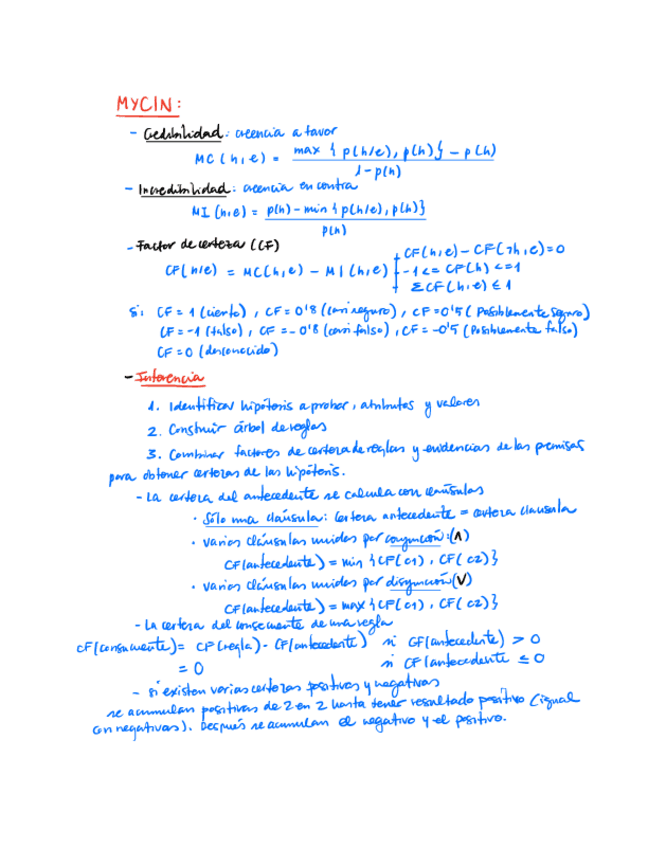 MYCIN:
- Credibilidad: creencia a favor
MC (h,e) = max { p(h/e), p(h)} - p(h)
1-p(h)
- Incredibilidad: creencia en contra
MI (h,e) = p(h) - min {p(h/e), p(h)}
p(h)
- Factor de certeza (CF)
CF(h,e) - CF(¬h,e)=0
CF(h/e) = MC(h,e) - MI(h,e) -1<= CF(h) <=1
ΣCF(h,e) ≤ 1
Si: CF = 1 (cierto), CF = 0'8 (casi seguro), CF = 0'5 (Posiblemente seguro)
CF = -1 (falso), CF = -0'8 (casi falso), CF = -0'5 (Posiblemente falso)
CF = 0 (desconocido)
- Inferencia
1. Identificar hipótesis a probar, atributos y valores
2. Construir árbol de reglas
3. Combinar factores de certeza de reglas y evidencias de las premisas
para obtener certezas de las hipótesis.
- La certeza del antecedente se calcula con cláusulas
· Sólo una cláusula: Certeza antecedente = certeza clausula
· Varias cláusulas unidas por conjunción: (∧)
CF(antecedente) = min {CF(c1), CF(c2)}
· Varias cláusulas unidas por disyunción (∨)
CF(antecedente) = max {CF(c1), CF(c2)}
- La certeza del consecuente de una regla
CF(consecuente) = CF(regla) · CF(antecedente) si CF(antecedente) > 0
= 0 si CF(antecedente ≤ 0
- Si existen varias certezas positivas y negativas
se acumulan positivas de 2 en 2 hasta tener resultado positivo (igual
con negativas). Después se acumulan el negativo y el positivo.